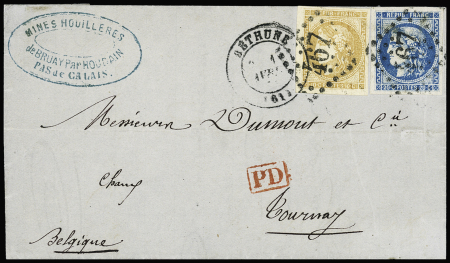 MINES HOUILLÈRES
de BRUAY Par HOUDAIN
PAS de CALAIS.
BÉTHUNE
1
(61)
467
REPUB. FRANC.
20 POSTES 20
Messieurs Dumont et Cie
Chaux
PD
Tournay
Belgique